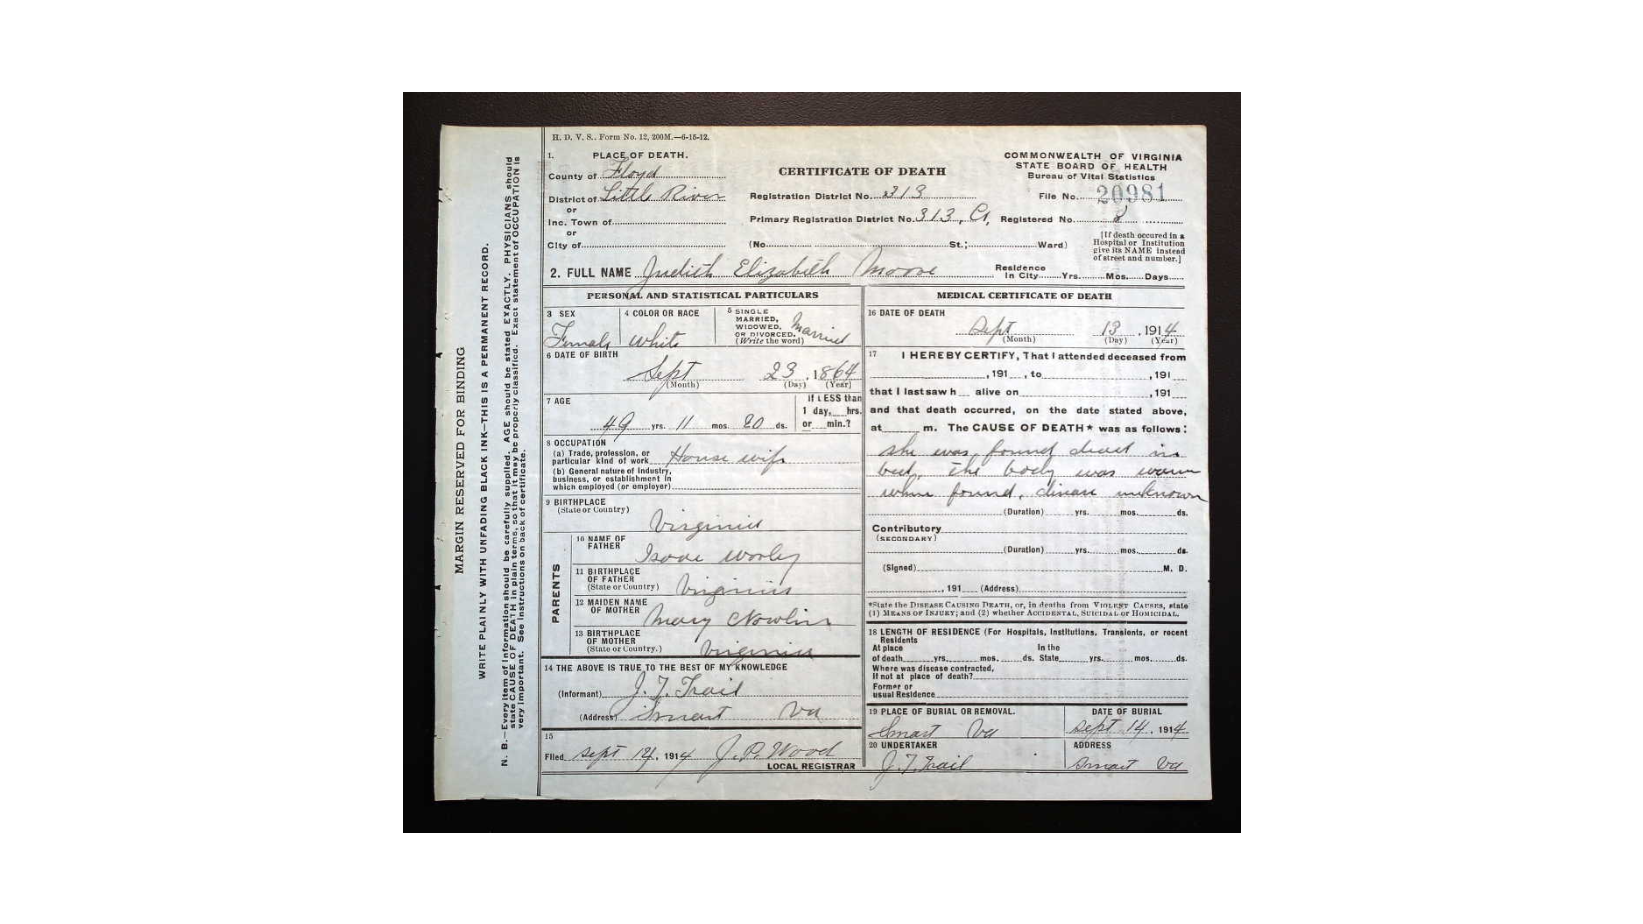 H. D. V. S. Form No. 12, 200M.—6-15-12.
1. PLACE OF DEATH.
County of Floyd
District of Little River
or
Inc. Town of
or
City of
CERTIFICATE OF DEATH
Registration District No. 313
Primary Registration District No. 313, C1,
(No. St.; Ward)
COMMONWEALTH OF VIRGINIA
STATE BOARD OF HEALTH
Bureau of Vital Statistics
File No. 20981
Registered No.
[If death occured in a
Hospital or Institution
give its NAME instead
of street and number.]
2. FULL NAME Judith Elizabeth Moore
Residence
In City Yrs. Mos. Days
PERSONAL AND STATISTICAL PARTICULARS
3 SEX
Female
4 COLOR OR RACE
White
5 SINGLE
MARRIED,
WIDOWED,
OR DIVORCED.
(Write the word)
Married
6 DATE OF BIRTH
Sept 23, 1864
(Month) (Day) (Year)
7 AGE
49 yrs. 11 mos. 20 ds.
If LESS than
1 day, hrs.
or min.?
8 OCCUPATION
(a) Trade, profession, or
particular kind of work House wife
(b) General nature of industry,
business, or establishment in
which employed (or employer)
9 BIRTHPLACE
(State or Country)
Virginia
PARENTS
10 NAME OF
FATHER
Isaac Worley
11 BIRTHPLACE
OF FATHER
(State or Country)
Virginia
12 MAIDEN NAME
OF MOTHER
Mary Nowlin
13 BIRTHPLACE
OF MOTHER
(State or Country.)
Virginia
14 THE ABOVE IS TRUE TO THE BEST OF MY KNOWLEDGE
(Informant) J. T. Trail
(Address) Smart Va
15
Filed Sept 1914 J. P. Wood
LOCAL REGISTRAR
MEDICAL CERTIFICATE OF DEATH
16 DATE OF DEATH
Sept 13, 1914
(Month) (Day) (Year)
17 I HEREBY CERTIFY, That I attended deceased from
, 191 , to , 191
that I last saw h alive on , 191
and that death occurred, on the date stated above,
at m. The CAUSE OF DEATH* was as follows:
she was found dead in
bed, the body was warm
when found, disease unknown
(Duration) yrs. mos. ds.
Contributory
(SECONDARY)
(Duration) yrs. mos. ds.
(Signed) M. D.
, 191 (Address)
*State the DISEASE CAUSING DEATH, or, in deaths from VIOLENT CAUSES, state
(1) MEANS OF INJURY; and (2) whether ACCIDENTAL, SUICIDAL or HOMICIDAL,
18 LENGTH OF RESIDENCE (For Hospitals, Institutions, Transients, or recent
Residents
At place In the
of death yrs. mos. ds. State yrs. mos. ds.
Where was disease contracted,
If not at place of death?
Former or
usual Residence
19 PLACE OF BURIAL OR REMOVAL.
Smart Va
DATE OF BURIAL
Sept 14, 1914
20 UNDERTAKER
J. T. Trail
ADDRESS
Smart Va
MARGIN RESERVED FOR BINDING
WRITE PLAINLY WITH UNFADING BLACK INK—THIS IS A PERMANENT RECORD.
N. B.—Every item of information should be carefully supplied. AGE should be stated EXACTLY. PHYSICIANS should
state CAUSE OF DEATH in plain terms, so that it may be properly classified. Exact statement of OCCUPATION is
very important. See instructions on back of certificate.